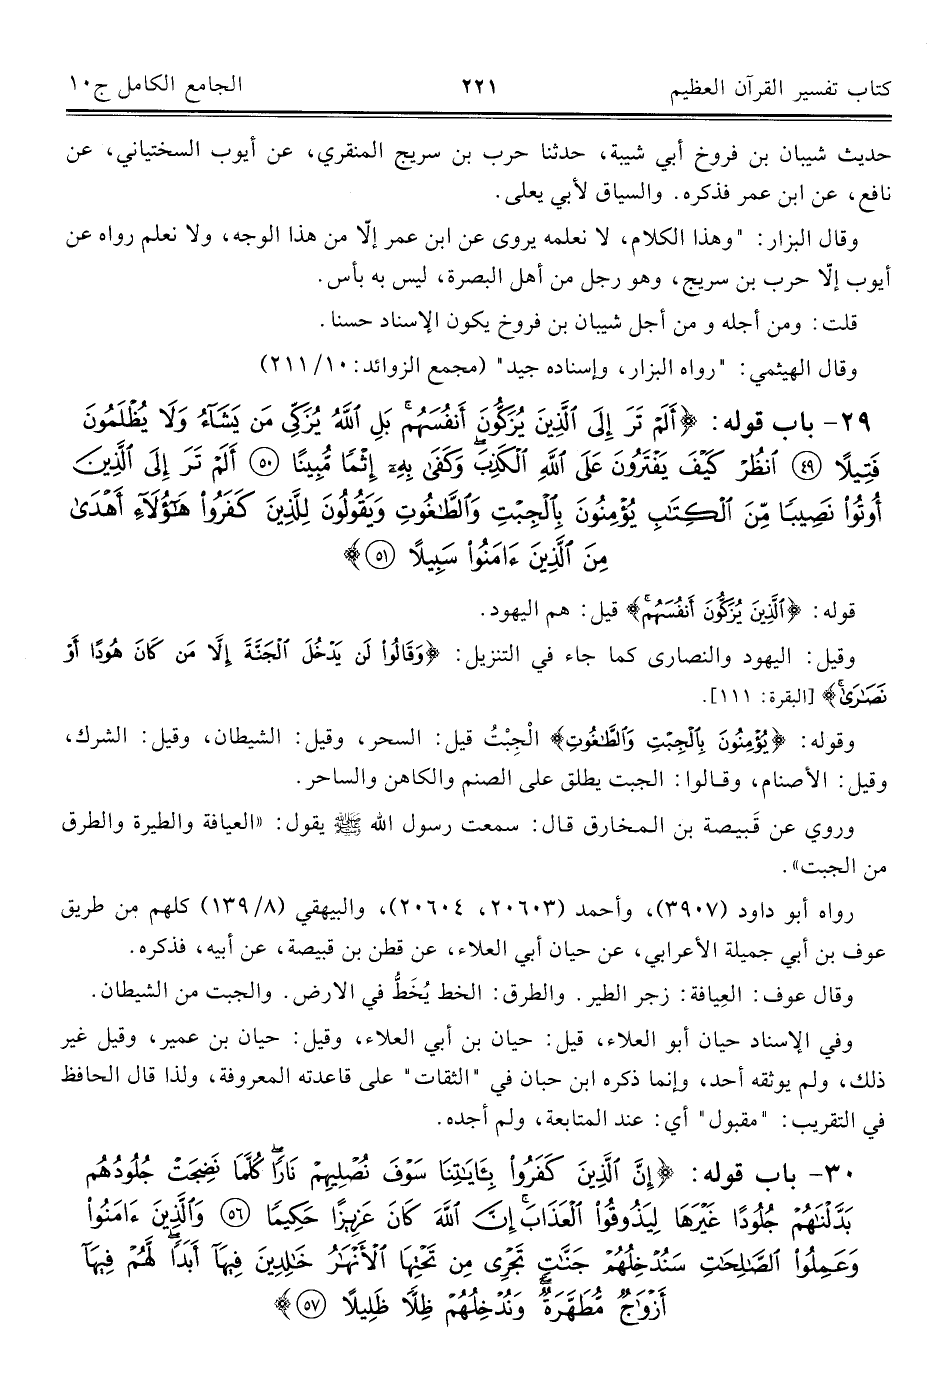 كتاب تفسير القرآن العظيم ٢٢١ الجامع الكامل ج١٠
حديث شيبان بن فروخ أبي شيبة، حدثنا حرب بن سريج المنقري، عن أيوب السختياني، عن
نافع، عن ابن عمر فذكره. والسياق لأبي يعلى.
وقال البزار: "وهذا الكلام، لا نعلمه يروى عن ابن عمر إلّا من هذا الوجه، ولا نعلم رواه عن
أيوب إلّا حرب بن سريج، وهو رجل من أهل البصرة، ليس به بأس.
قلت: ومن أجله و من أجل شيبان بن فروخ يكون الإسناد حسنا.
وقال الهيثمي: "رواه البزار، وإسناده جيد" (مجمع الزوائد: ١٠/ ٢١١)
٢٩- باب قوله: ﴿أَلَمْ تَرَ إِلَى ٱلَّذِينَ يُزَكُّونَ أَنفُسَهُمۚ بَلِ ٱللَّهُ يُزَكِّى مَن يَشَآءُ وَلَا يُظْلَمُونَ
فَتِيلًا ﴿٤٩﴾ ٱنظُرْ كَيْفَ يَفْتَرُونَ عَلَى ٱللَّهِ ٱلْكَذِبَۖ وَكَفَىٰ بِهِۦٓ إِثْمًا مُّبِينًا ﴿٥٠﴾ أَلَمْ تَرَ إِلَى ٱلَّذِينَ
أُوتُوا۟ نَصِيبًا مِّنَ ٱلْكِتَٰبِ يُؤْمِنُونَ بِٱلْجِبْتِ وَٱلطَّٰغُوتِ وَيَقُولُونَ لِلَّذِينَ كَفَرُوا۟ هَٰٓؤُلَآءِ أَهْدَىٰ
مِنَ ٱلَّذِينَ ءَامَنُوا۟ سَبِيلًا ﴿٥١﴾﴾
قوله: ﴿ٱلَّذِينَ يُزَكُّونَ أَنفُسَهُمۚ﴾ قيل: هم اليهود.
وقيل: اليهود والنصارى كما جاء في التنزيل: ﴿وَقَالُوا۟ لَن يَدْخُلَ ٱلْجَنَّةَ إِلَّا مَن كَانَ هُودًا أَوْ
نَصَٰرَىٰۗ﴾ [البقرة: ١١١].
وقوله: ﴿يُؤْمِنُونَ بِٱلْجِبْتِ وَٱلطَّٰغُوتِ﴾ الْجِبْتُ قيل: السحر، وقيل: الشيطان، وقيل: الشرك،
وقيل: الأصنام، وقالوا: الجبت يطلق على الصنم والكاهن والساحر.
وروي عن قَبيصة بن المخارق قال: سمعت رسول الله ﷺ يقول: «العيافة والطيرة والطرق
من الجبت».
رواه أبو داود (٣٩٠٧)، وأحمد (٢٠٦٠٣، ٢٠٦٠٤)، والبيهقي (٨/ ١٣٩) كلهم من طريق
عوف بن أبي جميلة الأعرابي، عن حيان أبي العلاء، عن قطن بن قبيصة، عن أبيه، فذكره.
وقال عوف: العِيافة: زجر الطير. والطرق: الخط يُخَطُّ في الارض. والجبت من الشيطان.
وفي الإسناد حيان أبو العلاء، قيل: حيان بن أبي العلاء، وقيل: حيان بن عمير، وقيل غير
ذلك، ولم يوثقه أحد، وإنما ذكره ابن حبان في "الثقات" على قاعدته المعروفة، ولذا قال الحافظ
في التقريب: "مقبول" أي: عند المتابعة، ولم أجده.
٣٠- باب قوله: ﴿إِنَّ ٱلَّذِينَ كَفَرُوا۟ بِـَٔايَٰتِنَا سَوْفَ نُصْلِيهِمْ نَارًاۖ كُلَّمَا نَضِجَتْ جُلُودُهُم
بَدَّلْنَٰهُمْ جُلُودًا غَيْرَهَا لِيَذُوقُوا۟ ٱلْعَذَابَۗ إِنَّ ٱللَّهَ كَانَ عَزِيزًا حَكِيمًا ﴿٥٦﴾ وَٱلَّذِينَ ءَامَنُوا۟
وَعَمِلُوا۟ ٱلصَّٰلِحَٰتِ سَنُدْخِلُهُمْ جَنَّٰتٍ تَجْرِى مِن تَحْتِهَا ٱلْأَنْهَٰرُ خَٰلِدِينَ فِيهَآ أَبَدًاۖ لَّهُمْ فِيهَآ
أَزْوَٰجٌ مُّطَهَّرَةٌۖ وَنُدْخِلُهُمْ ظِلًّا ظَلِيلًا ﴿٥٧﴾﴾